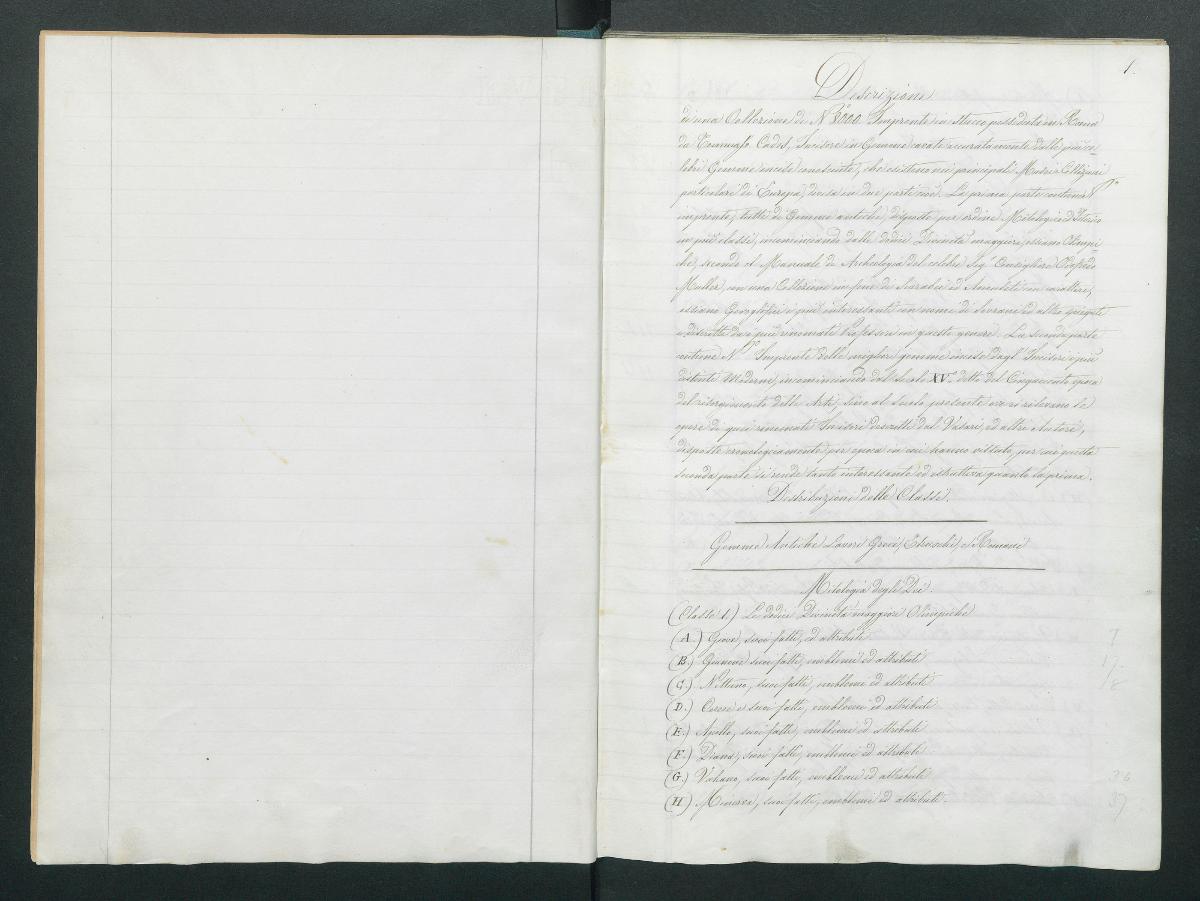 1.
Descrizione
di una Collezione di N.º 8000 Impronte in stucco posseduta in Roma
da Tommaso Cades, Incisore in Gemme cavate accuratamente dalle più ce=
lebri Gemme incise conosciute, che esistono nei principali Musei e Collezioni
particolari di Europa, divisa in due parti cioè. La prima parte contiene N.º
impronte, tutte di Gemme antiche, disposte per ordine Mitologico ed Istorico
in più classi, incominciando dalle dodici Divinità maggiori, ossiano Olimpi=
che, secondo il Manuale di Archeologia del celebre Sig.r Consigliere
Muller, con una Collezione in fine di Scarabei ed Amuleti con caratteri,
ossiano Geroglifici i più interessanti con nomi di Sovrani ed altro spiegati
e descritti da i più rinomati Professori in questo genere. La seconda parte
contiene N.º Impronte delle migliori gemme incise dagl' Incisori i più
distinti Moderni, incominciando dal Secolo XV.º detto del Cinquecento epoca
del risorgimento delle Arti, sino al Secolo presente ove si rilevano le
opere di quei rinomati Incisori descritti dal Vasari, ed altri Autori,
disposte cronologicamente per epoca in cui hanno vissuto, per cui questa
seconda parte si rende tanto interessante ed istruttiva quanto la prima.
Distribuzione delle Classi.
Gemme Antiche Lavori Greci, Etruschi, e Romani
Mitologia degli Dei.
(Classe 1.) Le dodici Divinità maggiori Olimpiche
(A.) Giove, suoi fatti, ed attributi
(B.) Giunone suoi fatti, emblemi ed attributi
(C.) Nettuno, suoi fatti, emblemi ed attributi
(D.) Cerere e suoi fatti, emblemi ed attributi
(E.) Apollo, suoi fatti, emblemi ed attributi
(F.) Diana, suoi fatti, emblemi ed attributi
(G.) Vulcano, suoi fatti, emblemi ed attributi
(H.) Minerva, suoi fatti, emblemi ed attributi.